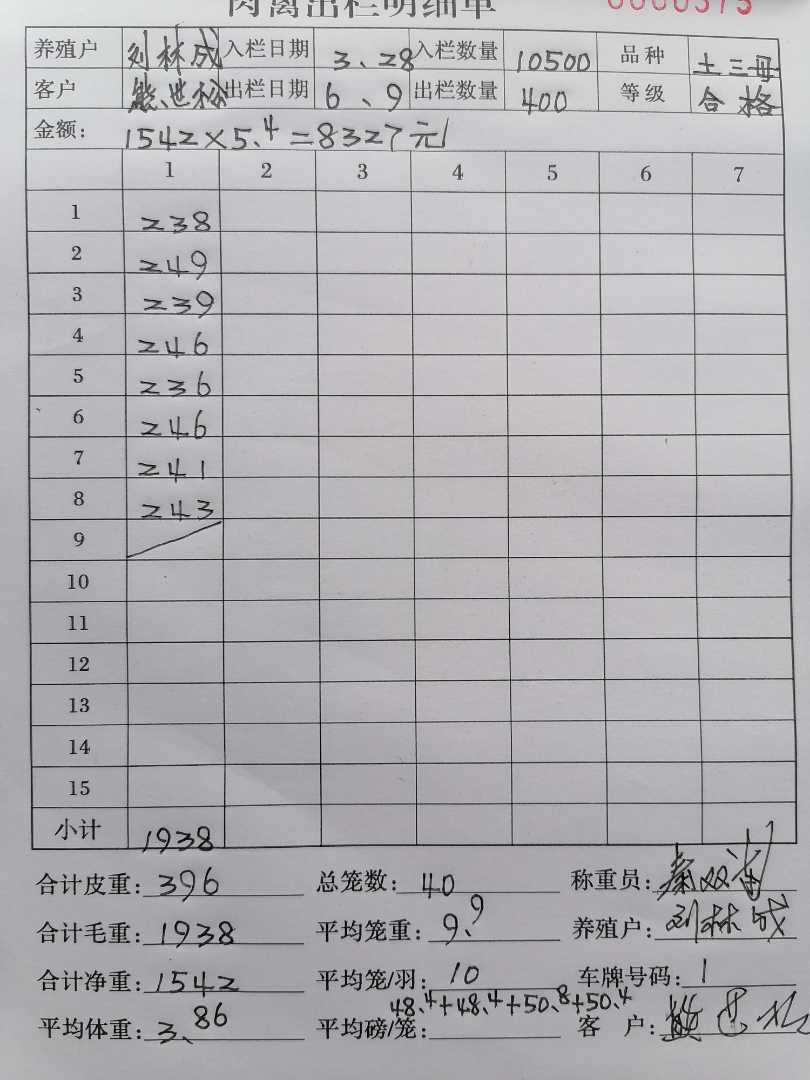 肉禽出栏明细单 0000375
养殖户 刘林成 入栏日期 3、28 入栏数量 10500 品种 土三母
客户 熊世松 出栏日期 6、9 出栏数量 400 等级 合格
金额: 1542×5.4=8327元
1 2 3 4 5 6 7
1 238
2 249
3 239
4 246
5 236
6 246
7 241
8 243
9
10
11
12
13
14
15
小计 1938
合计皮重: 396 总笼数: 40 称重员:
合计毛重: 1938 平均笼重: 9.9 养殖户: 刘林成
合计净重: 1542 平均笼/羽: 10 车牌号码: 1
48.4+48.4+50.8+50.4
平均体重: 3.86 平均磅/笼: 客户: